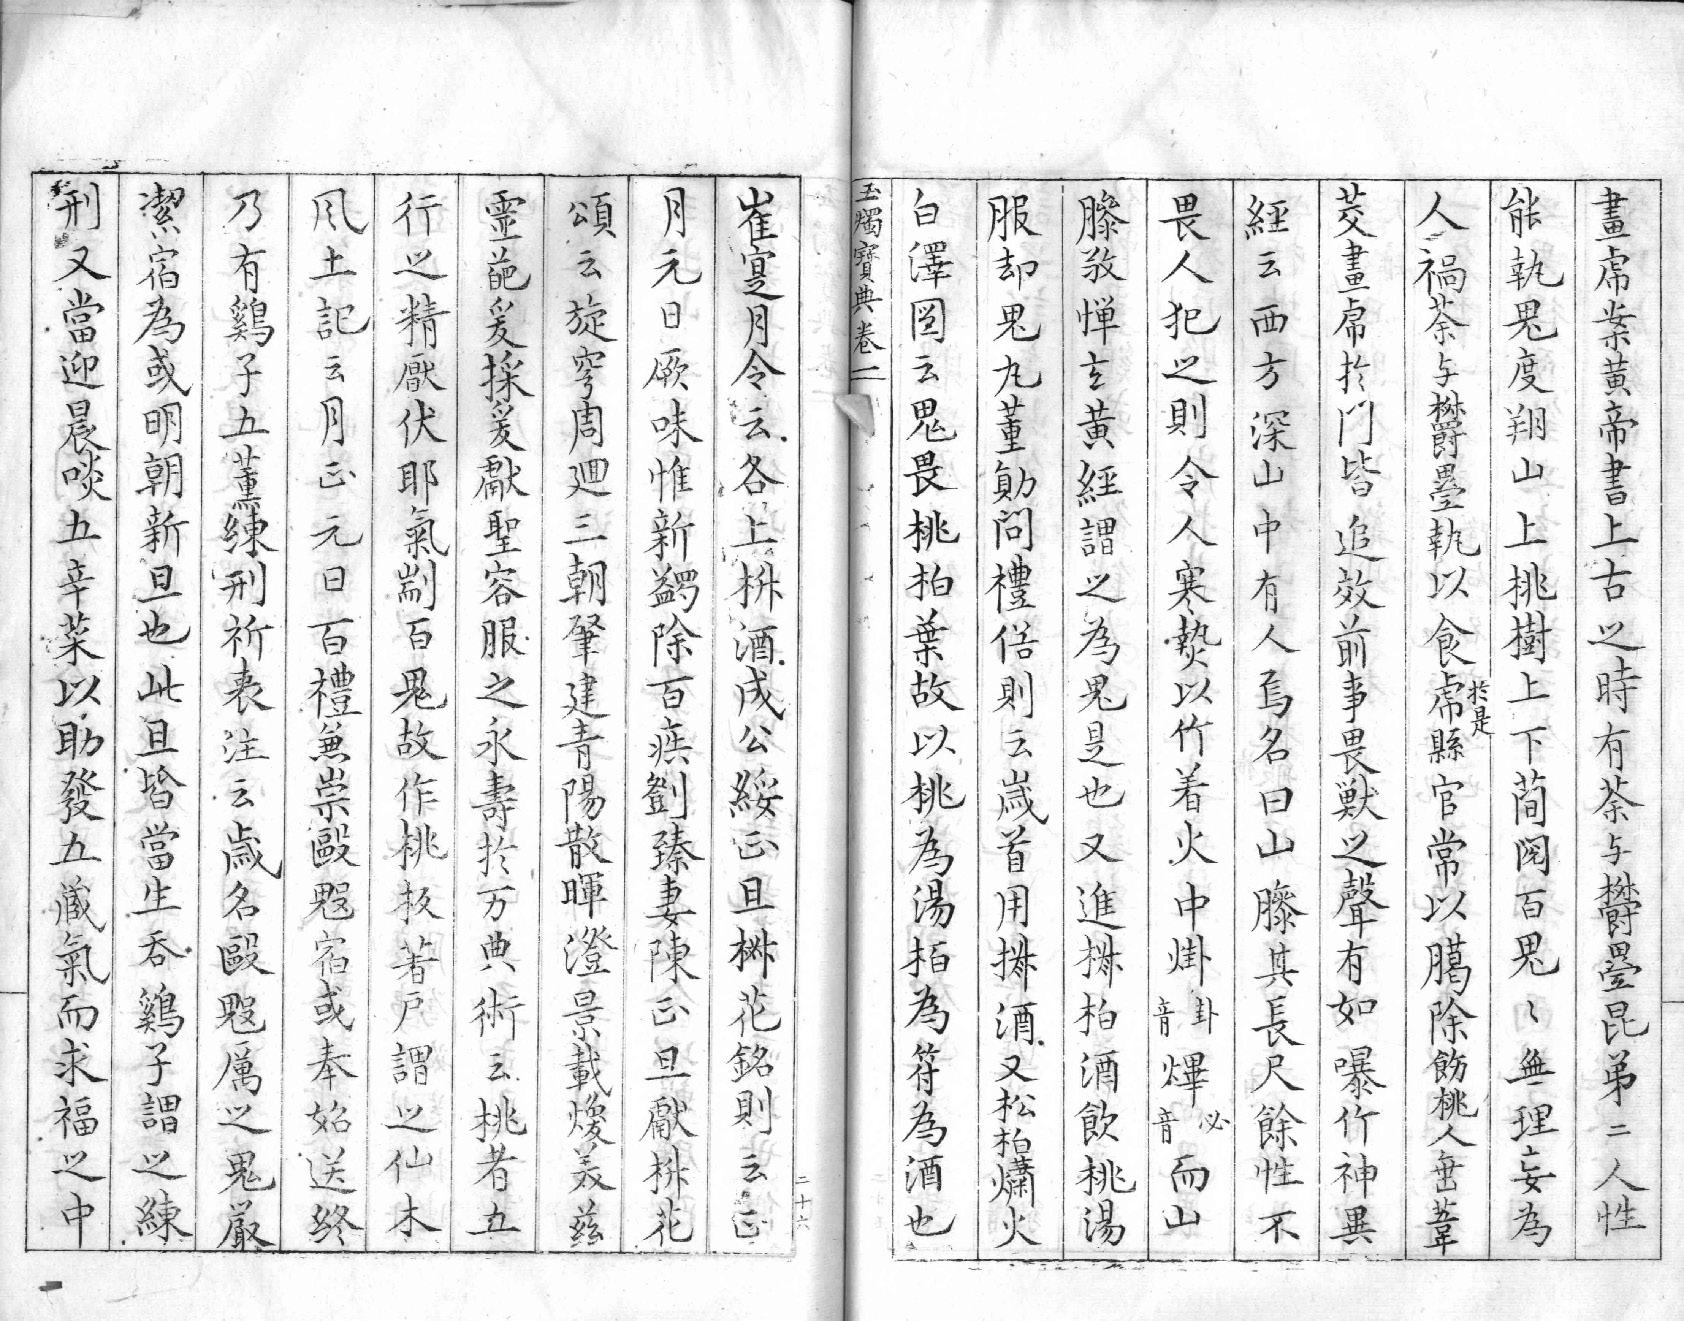 畫虎案黃帝書上古之時有荼与欝壘昆弟二人性
能執鬼度翔山上桃樹上下蕳閱百鬼〻無理妄為
人禍荼与欝壘執以食虎於是縣官常以臈除飭桃人垂葦
茭畫虎於門皆追效前事畏獸之聲有如曝竹神異
經云西方深山中有人焉名曰山臊其長尺餘性不
畏人犯之則令人寒熱以竹着火中烞音卦熚音必而山
臊敬憚玄黃經謂之為鬼是也又進椒柏酒飲桃湯
服却鬼丸董勛問禮俗則云歲首用椒酒又松柏爛火
白澤圖云鬼畏桃柏葉故以桃為湯栢為符為酒也
玉燭寶典卷一
二十六
崔寔月令云各上椒酒成公綏正旦椒花銘則云正
月元日厥味惟新蠲除百疾劉臻妻陳正旦獻椒花
頌云旋穹周迴三朝肇建青陽散暉澄景載煥美茲
靈葩爰採爰獻聖容服之永壽於万典術云桃者五
行之精厭伏耶氣剬百鬼故作桃板著戶謂之仙木
風土記云月正元日百禮無崇毆䰧宿或奉始送終
乃有鷄子五薰練刑祈表注云歲名毆䰧厲之鬼嚴
潔宿為或明朝新旦也此旦皆當生吞鷄子謂之練
刑又當迎晨啖五辛菜以助發五藏氣而求福之中